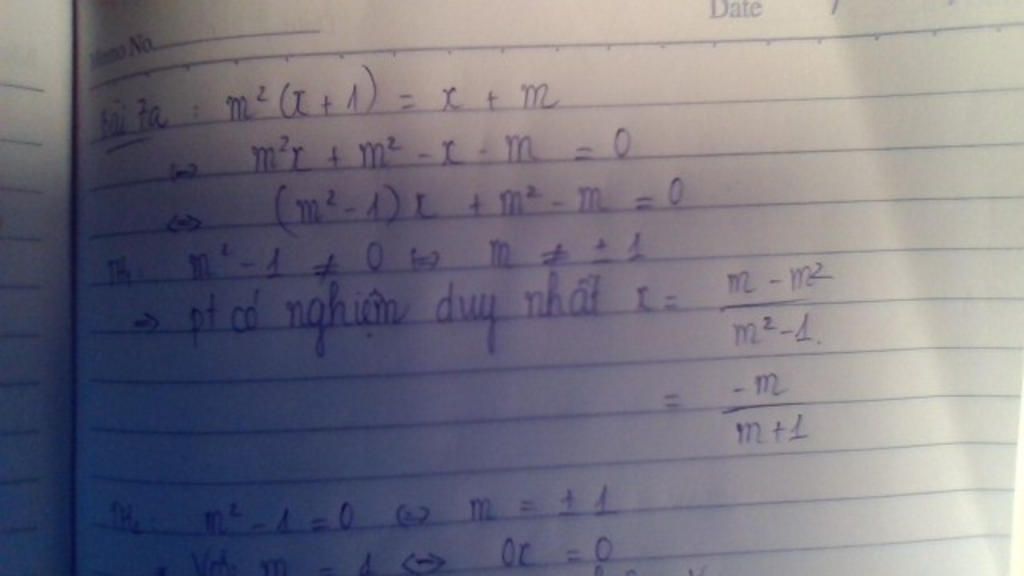 Date /
Memo No.
Bài 7a : m²(x + 1) = x + m
⇔ m²x + m² - x - m = 0
⇔ (m² - 1)x + m² - m = 0
TH₁: m² - 1 ≠ 0 ⇔ m ≠ ± 1
⇒ pt có nghiệm duy nhất x = (m - m²)/(m² - 1)
= -m/(m + 1)
TH₂: m² - 1 = 0 ⇔ m = ± 1
+ Với m = 1 ⇔ 0x = 0